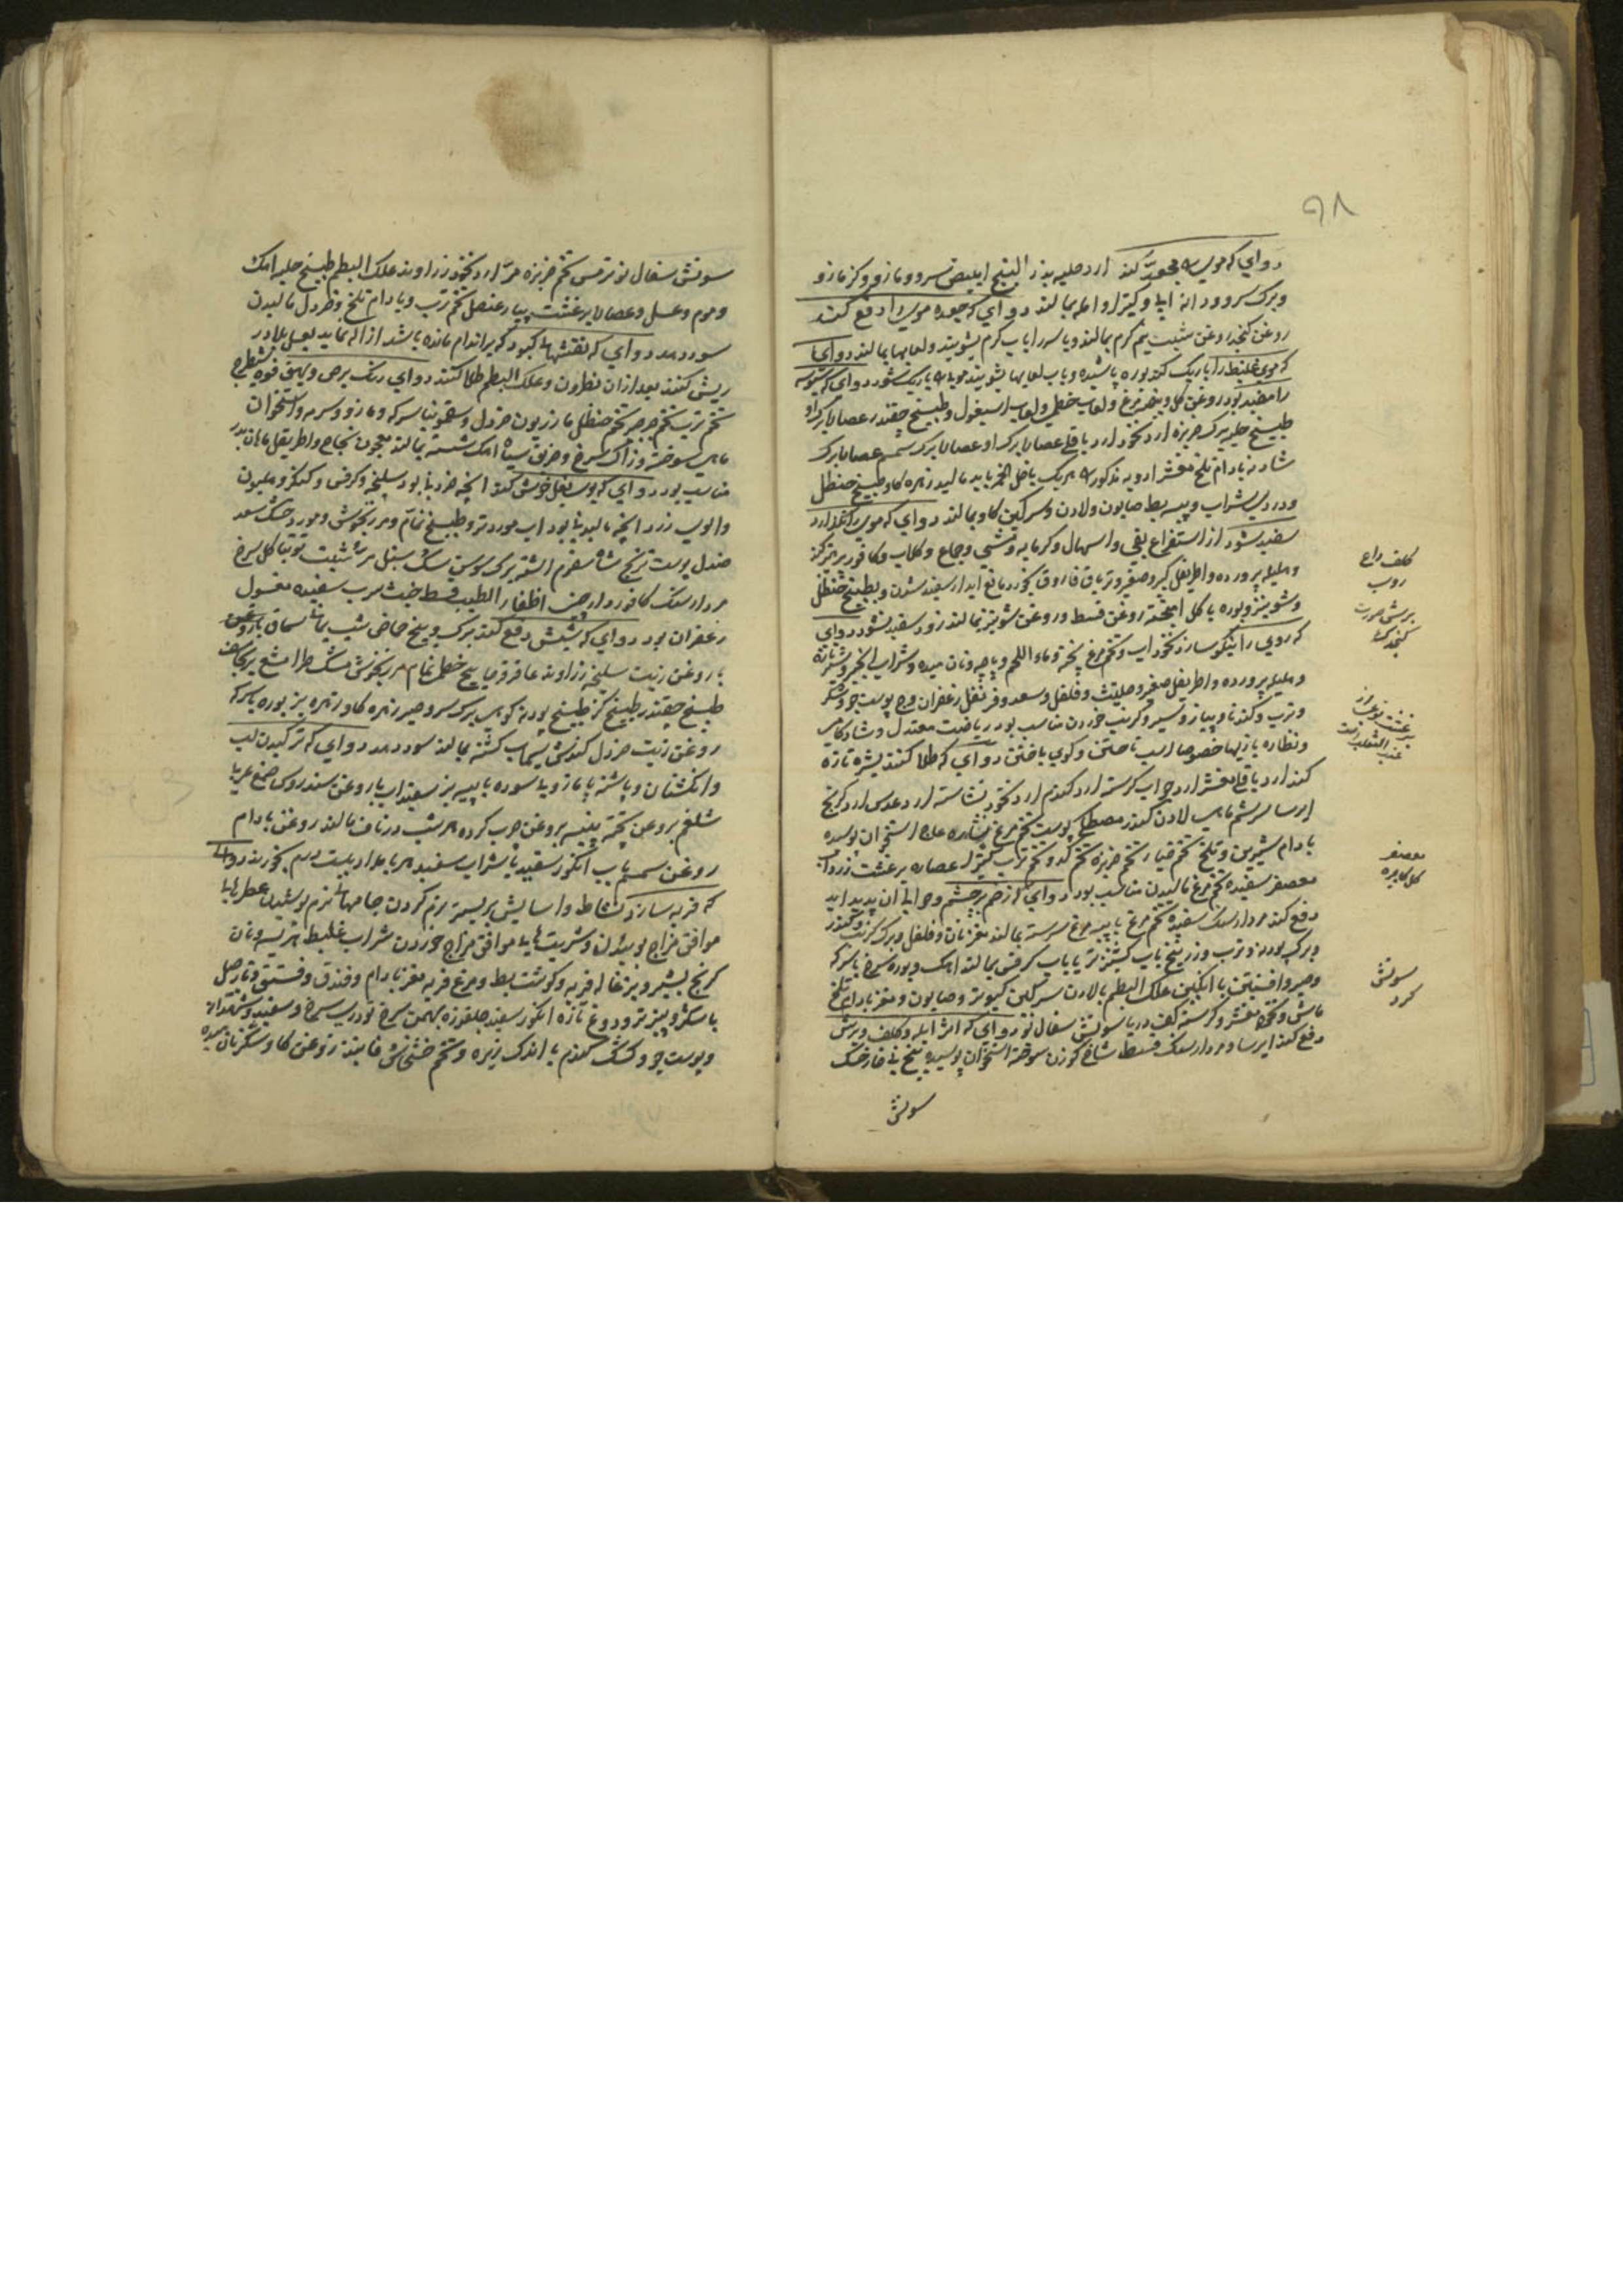 ۹۸
دوای که موی را مجعد کند ارد حلبه بذر البنج ابیض سرو و مازو و کزمازو
و برک سرو و دانه ابله و کتیرا و امله بمالند دوای که جعوده موی را دفع کند
روغن کنجد روغن شبت نیم کرم بمالند و یا سر را باب کرم بشویند و لعابها بمالند دوای
که موی غلیظ را باریک کند بوره پاشیده و باب لعابها بشویند موی را باریک شود دوای که
را مفید بود روغن کل و بیضه مرغ و لعاب خطمی و لعاب اسبغول و طبیخ چقندر عصاره برک او
طبیخ حلبه برک خربزه ارد نخود ارد باقلی عصاره برک او عصاره برک سمسم عصاره برک
شاه دانه بادام تلخ مقشر ادویه مذکوره هریک باخل الخمر باید مالید زهره کاو طبیخ حنظل
و دردی شراب و پیه بط صابون و لادن و سرکین کاو بمالند دوای که موی را نکذارد
سفید شود از استفراغ بقی و اسهال و کرمابه و تمشی و جماع و کلاب و کافور پرهیز کند
و هلیله پرورده و اطریفل کبیر و صغیر و تریاق فاروق بخورد مانع اید از سفید شدن و بطبیخ حنظل
و شونیز و بوره با کل امیخته روغن قسط و روغن شونیز بمالند زود سفید نشود دوای
که روی را نیکو سازد نخوداب و تخم مرغ پخته و ماء اللحم و پاچه و نان میده و شراب انجیر و شیر تازه
و هلیله پرورده و اطریفل صغیر و حلتیت و فلفل و سعد و قرنفل زعفران و پوست جو و شکر
و ترب و کندنا و پیاز و سیر و کرنب خوردن مناسب بود ریاضت معتدل و شادکامی
و نظاره بازیها خصوصا اسب تاختن و کوی باختن دوای که طلا کنند بشره تازه
کند ارد باقلی مقشر ارد جو اب کرسنه ارد کندم ارد نخود نشاسته ارد عدس ارد کرنج
ایرسا سریشم ماهی لادن کندر مصطکی پوست تخم مرغ نشاره عاج استخوان پوسیده
بادام شیرین و تلخ تخم خیار تخم خربزه تخم کدو تخم ترب کتیرا عصاره برغشت زرداب
معصفر سفیده تخم مرغ مالیدن مناسب بود دوای که از ضم بر چشم و حوالی ان پدید اید
دفع کند مردارسنک سفیده تخم مرغ با پیه مرغ سرشته بمالند مغز نان و فلفل و برک کرنب و کندر
و برک پودنه و ترب و زرنیخ باب کشنیز تر یا باب کرفس بمالند اهک و بوره سرخ با سرکه
و صبر و افسنتین با انکبین علک البطم با لادن سرکین کبوتر و صابون و مغز بادام تلخ
ماش و نخود مقشر و کرسنه کف دریا سوتش سفال نو دوای که اثر ابله و کلف و برش
دفع کند ایرسا و مردارسنک قسط شاخ کوزن سوخته استخوان پوسیده بیخ نی فارخشک
سوتش
کلف داغ
روب
برش صورت
کنجدک
برغشت نوعی از
عنب الثعلب است
معصفر
کل کاجره
سوتش
کرد
سوتش سفال نو ترمس تخم خربزه مر ارد نخود زراوند علک البطم طبیخ حلبه اهک
و موم و عسل و عصاره برغشت پیاز عنصل تخم ترب و بادام تلخ و خردل مالیدن
سود دهد دوای که نقشهای کبود که بر اندام مانده باشد ازاله نماید بعسل بلادر
ریش کنند بعد ازان نطرون و علک البطم طلا کنند دوای رنک برص و بهق فوه شیطرج
تخم ترب تخم جرجیر تخم حنظل مازریون خردل و سقمونیا سرکه و مازو و سرمه و استخوان
ماهی سوخته و زاک سرخ و خربق سیاه اهک شسته بمالند معجون نجاح و اطریفل مامان بدر
مناسب بود دوای که بوی بغل خوش کند انچه خوردنی بود سلیخه و کرفس و کنکر و هلیون
و الوی زرد انچه مالیدنی بود اب مورد تر و طبیخ نمام و مرزنجوش و مورد خشک سعد
صندل پوست ترنج شاه سفرم اشنه برک سوسن سک سنبل مر شبت توتیا کل سرخ
مردارسنک کافور دارچینی اظفار الطیب قسط خبث سرب سفیده مغسول
زعفران بود دوای که شپش دفع کند برک و بیخ حماض شب یمانی سماق با روغن
با روغن زیت سلیخه زراوند عاقرقرحا بیخ خطمی نمام مرزنجوش مشک طرامشیع برنجاسف
طبیخ چقندر طبیخ کز طبیخ پودنه کوهی برک سرو صبر زهره کاو زهره بز بوره با سرکه
روغن زیت خردل کندش سیماب کشته بمالند سود دهد دوای که ترکیدن لب
و انکشتان و پاشنه پا مازو با سوده با پیه بز سفیداب با روغن سندروس صمغ عربی
شلغم بروغن پخته پنبه بروغن چرب کرده هر شب در ناف مالند روغن بادام
روغن سمسم باب انکور سفید یا شراب سفید هر بامداد بیست درم بخورند دوای
که فربه سازد نشاط و اسایش بر بستر نرم کردن جامهای نرم پوشیدن عطرهای
موافق مزاج بوئیدن و شربتهای موافق مزاج خوردن شراب غلیظ هریسه و نان
کرنج بشیر و بزغاله فربه و کوشت بط و مرغ فربه مغز بادام و فندق و فستق و نارجیل
با شکر و پنیر تر و دوغ تازه انکور سفید جلغوزه بهمن سرخ تودری سرخ و سفید و شهدانه
و پوست جو و کشک کندم با اندک زیره و تخم خشخاش فانیذ روغن کاو و شکر نان میده